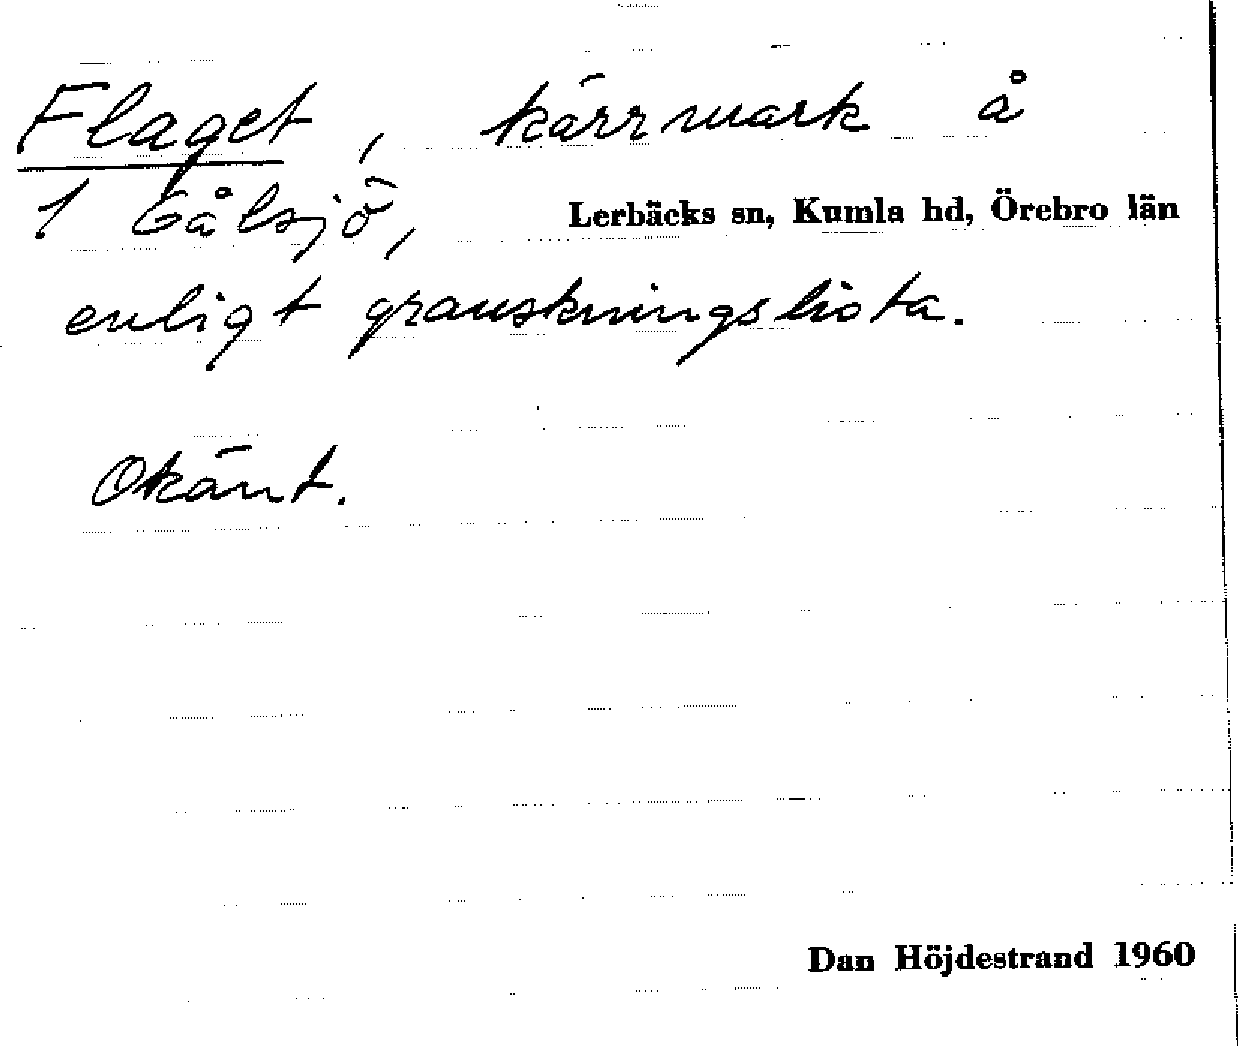 Flaget, kärrmark å
1 Bålsjö, Lerbäcks sn, Kumla hd, Örebro län
enligt granskningslista.
Okänt.
Dan Höjdestrand 1960